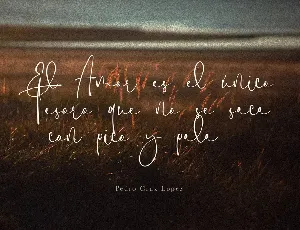 El Amor es el único
tesoro que no se saca
con pico y pala
Pedro Cruz Lopez